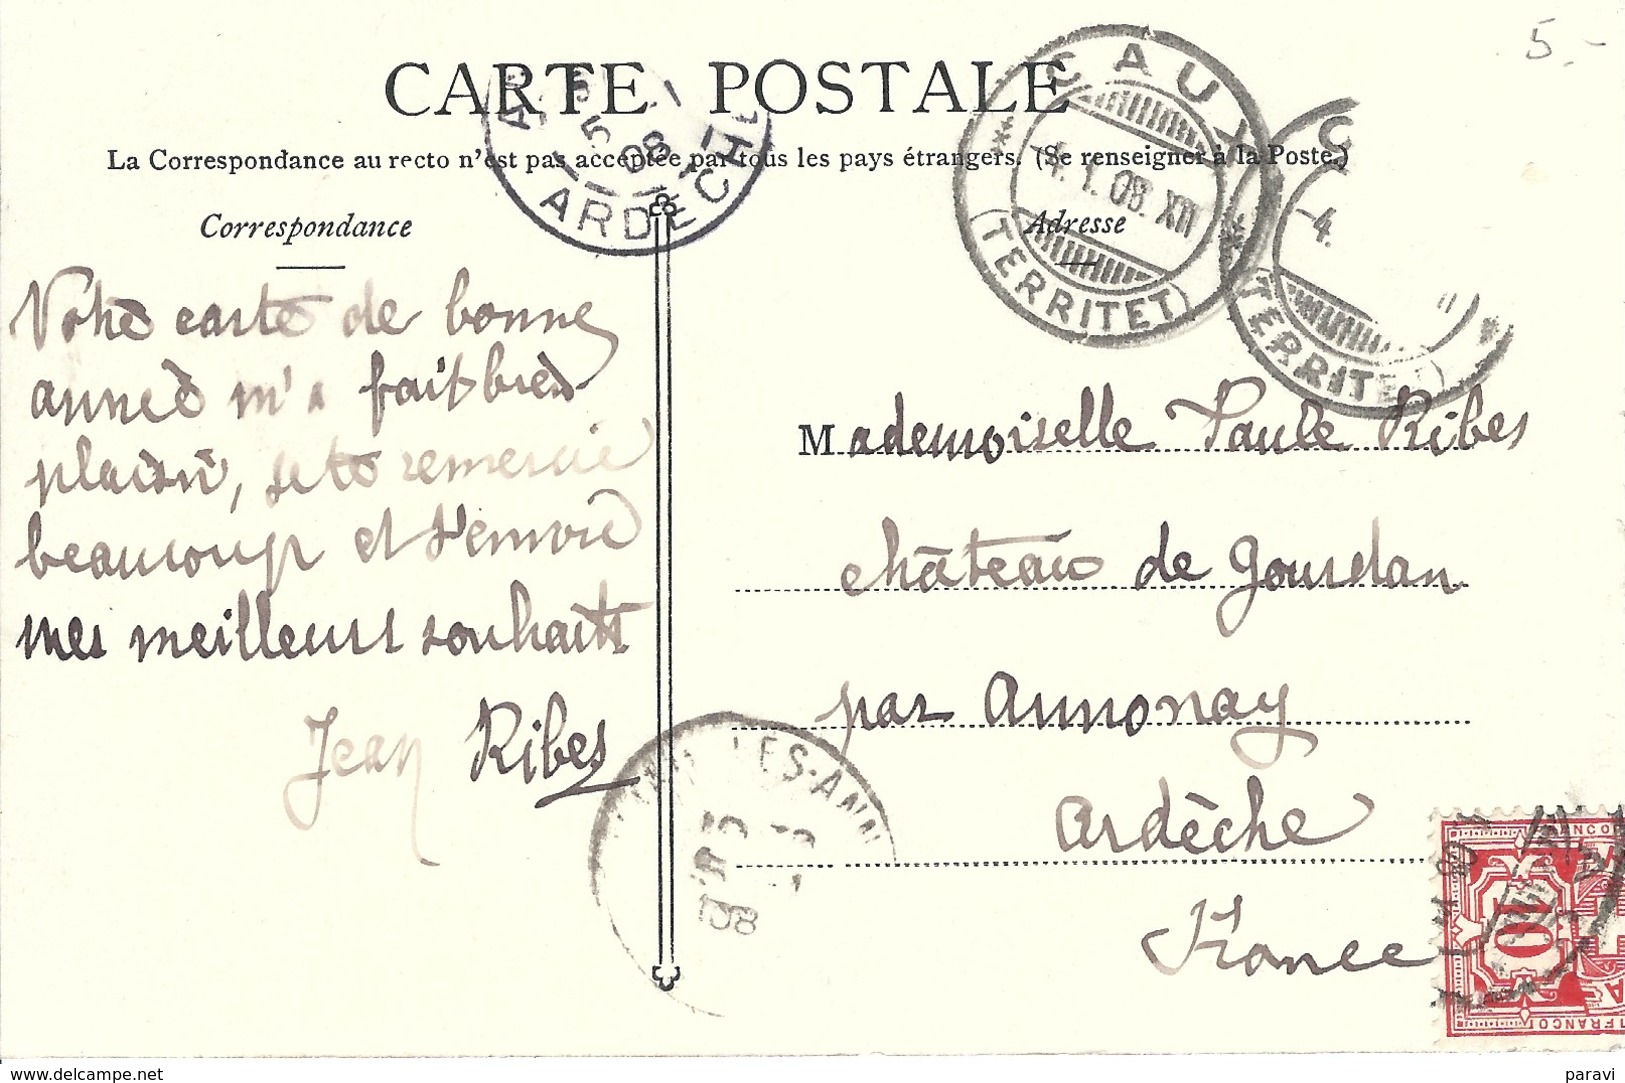 5.-
CARTE POSTALE
La Correspondance au recto n'est pas acceptée par tous les pays étrangers. (Se renseigner à la Poste.)
Correspondance
Adresse
CAUX
4.1.08.XII
(TERRITET)
C
-4.
(TERRITET)
5
08
ARDÈCHE
Votre carte de bonne
année m'a fait bien
plaisir, je te remercie
beaucoup et t'envoie
mes meilleurs souhaits
Jean Ribes
Mademoiselle Paule Ribes
château de Gourdan
par Annonay
Ardèche
France
LES-ANN
5
08
10
FRANCO
delcampe.net
paravi